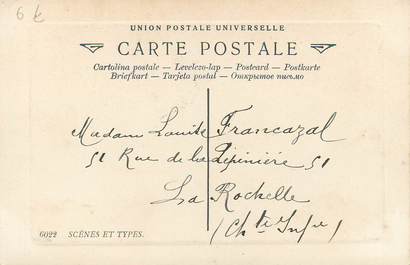 6 €
UNION POSTALE UNIVERSELLE
CARTE POSTALE
Cartolina postale — Levelezo-lap — Postcard — Postkarte
Briefkart — Tarjeta postal — Открытое письмо
Madame Louise Francazal
51 Rue de la Pépinière 51
La Rochelle
(Chte Infre)
6022 SCÈNES ET TYPES.